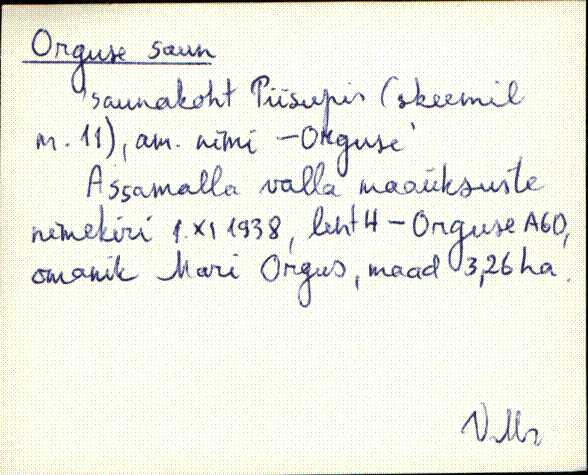 Orguse saun
'saunakoht Piisupis (skeemil
nr. 11), am. nimi – Orguse'
Assamalla valla maaüksuste
nimekiri 1.XI 1938, leht 4 – Orguse A60,
omanik Mari Orgus, maad 3,26 ha.